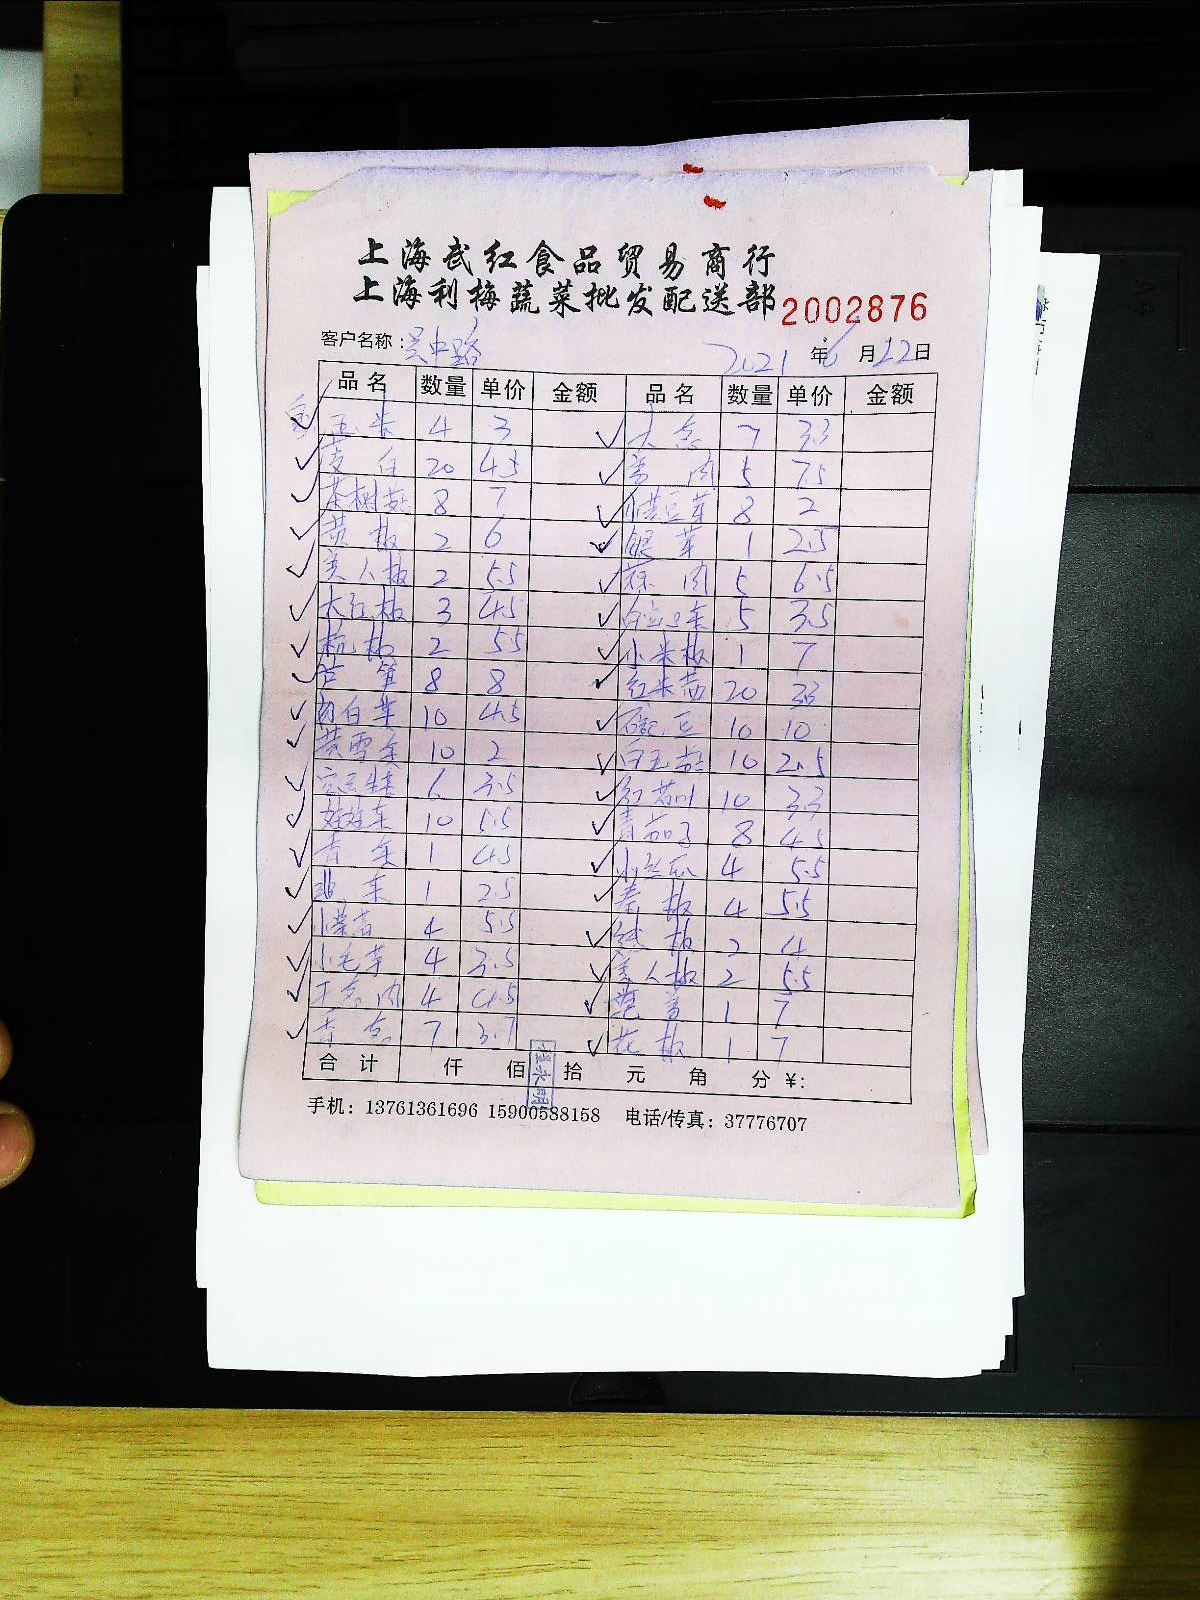 上海武红食品贸易商行
上海利梅蔬菜批发配送部 2002876
客户名称：吴中路 2021年6月22日
品名 数量 单价 金额 品名 数量 单价 金额
玉米 4 3 大葱 7 3.3
茭白 20 4.5 5 7.5
茶树菇 8 7 小黄豆芽 8 2
黄椒 2 6 银芽 1 2.5
美人椒 2 5.5 蒜肉 5 6.5
大红椒 3 4.5 5 3.5
杭椒 2 5.5 小米椒 1 7
芦笋 8 8 红米苋 20 3.3
10 4.5 豌豆 10 10
10 2 白玉菇 10 2.5
6 3.5 10 3.3
娃娃菜 10 5.5 青茄子 8 4.5
1 4.5 小丝瓜 4 5.5
1 2.5 4 5.5
4 5.5 2 4
小毛芋 4 3.5 美人椒 2 5.5
干葱肉 4 4.5 1 7
香葱 7 3.7 花椒 1 7
合计 仟 佰 拾 元 角 分 ¥:
手机：13761361696 15900588158 电话/传真：37776707